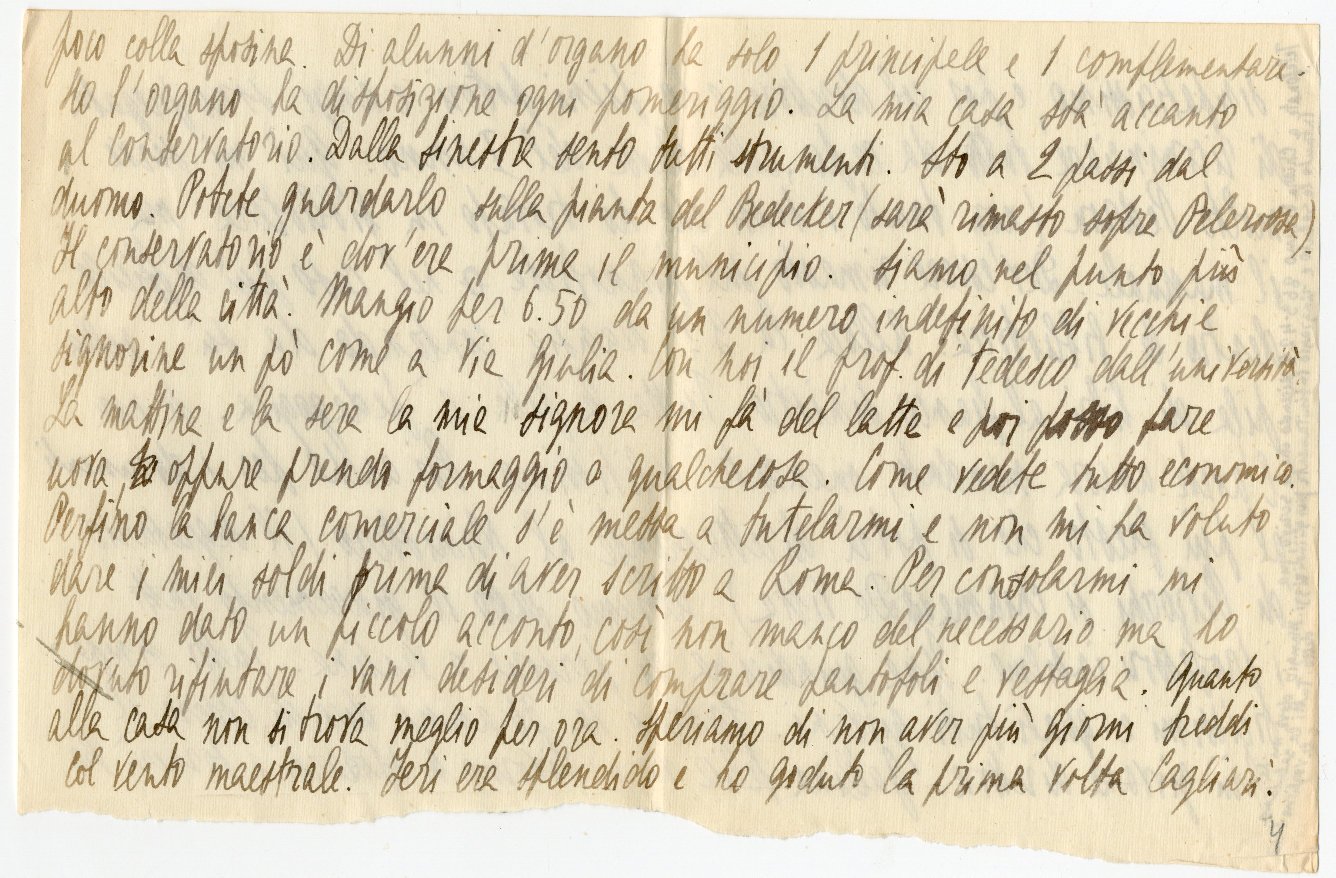 poco colla sposina. Di alunni d'organo ha solo 1 principale e 1 complementare.
Ho l'organo ha disposizione ogni pomeriggio. La mia casa stà accanto
al Conservatorio. Dalla finestra sento tutti strumenti. Sto a 2 passi dal
duomo. Potete guardarlo sulla pianta del Bedecker (sarà rimasto sopra
Il conservatorio è dov'era prima il municipio. Siamo nel punto più
alto della città. Mangio per 6.50 da un numero indefinito di vecchie
signorine un pò come a Via Giulia. Con noi il prof. di tedesco dall'università.
La mattina e la sera la mia signora mi fà del latte e poi posso fare
uova, oppure prendo formaggio o qualchecosa. Come vedete tutto economico.
Perfino la banca comerciale s'è messa a tutelarmi e non mi ha voluto
dare i miei soldi prima di aver scritto a Roma. Per consolarmi mi
hanno dato un piccolo acconto, così non manco del necessario ma ho
dovuto rifiutare i vari desideri di comprare pantofoli e vestaglia. Quanto
alla casa non si trova meglio per ora. Speriamo di non aver più giorni freddi
col vento maestrale. Ieri era splendido e ho goduto la prima volta Cagliari.
4